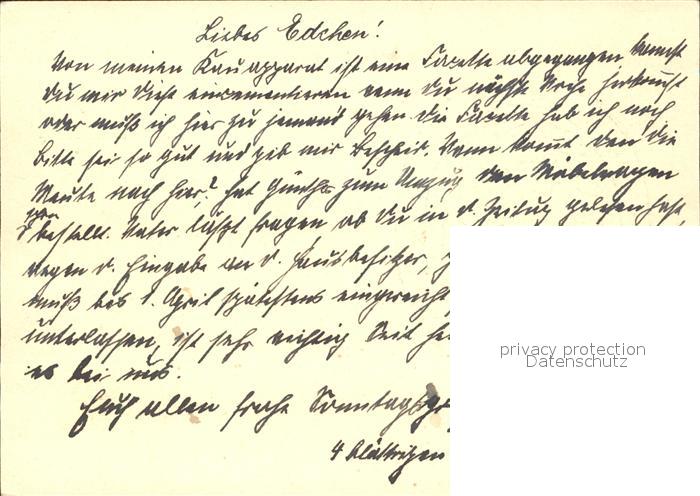 Liebes Edchen!
Von meinen Kauapparat ist eine Facette abgegangen, kannst
du mir diese einzementieren wenn du nächste Woche herkommst
oder muß ich hier zu jemand gehen die Facette hab ich noch
bitte sei so gut und gib mir Bescheid. Wann kommt den die
Meute nach hier? hat Günther zum Umzug den Möbelwagen
schon bestellt. Vater läßt fragen ob du in d. Zeitung gelesen hast,
wegen d. Eingabe an d. Hausbesitzer,
muß bis 1. April spätestens eingereicht
unterlassen, ist sehr wichtig Seit
es bei uns.
Euch allen frohe
4 blättrigen
privacy protection
Datenschutz